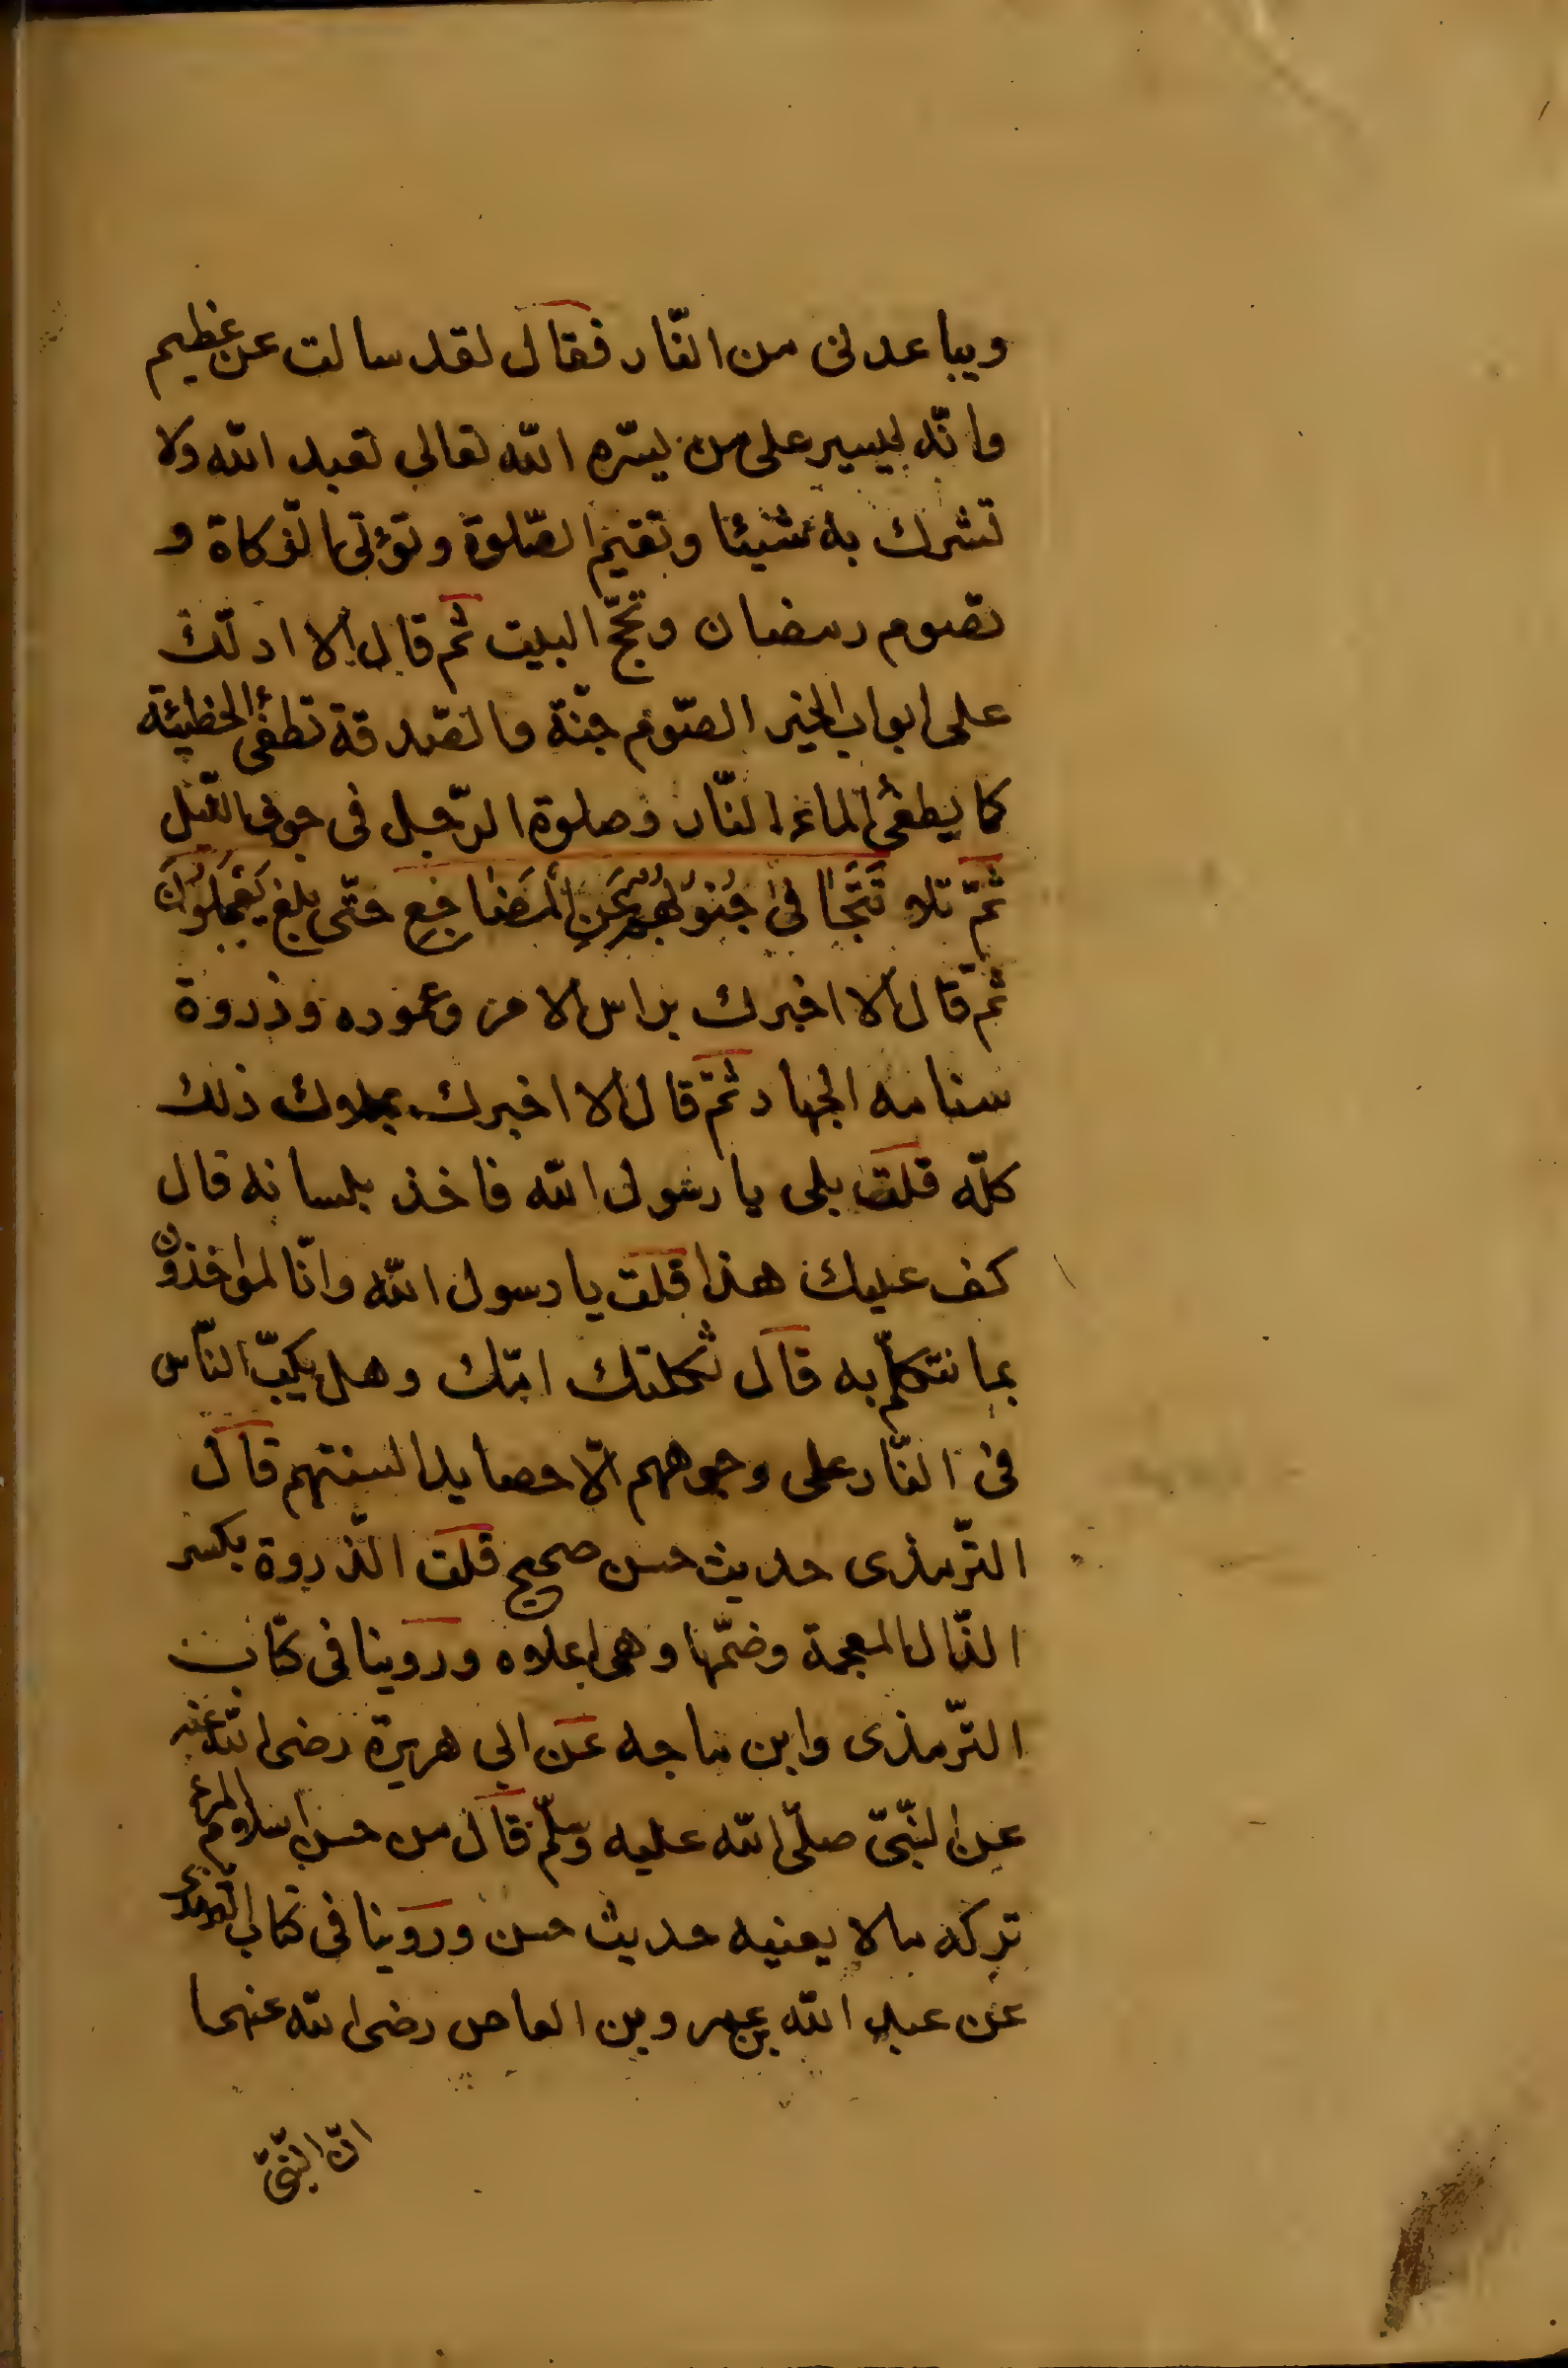 ويباعدنى من النّار فقال لقد سالت عن عظيم
وانّه ليسير على من يسّره الله تعالى تعبد الله ولا
تشرك به شيئا وتقيم الصّلوة وتؤتى الزكاة و
تصوم رمضان وتحجّ البيت ثم قال الا ادلّك
على ابواب الخير الصّوم جنّة والصّدقة تطفئ الخطيئة
كما يطفئ الماء النّار وصلوة الرّجل فى جوف الليل
ثمّ تلا تَتَجَافىٰ جُنُوبُهُمْ عَنِ الْمَضَاجِعِ حتّى بلغ يَعْمَلُونَ
ثم قال الا اخبرك براس الامر وعموده وذروة
سنامه الجهاد ثمّ قال الا اخبرك بملاك ذلك
كلّه قلت بلى يا رسول الله فاخذ بلسانه قال
كف عليك هذا قلت يا رسول الله وانّا لمواخذون
بما نتكلّم به قال ثكلتك امّك وهل يكبّ النّاس
فى النّار على وجوههم الّا حصايد السنتهم قال
التّرمذى حديث حسن صحيح قلت الذّروة بكسر
الذّال المعجمة وضمّها وهى اعلاه وروينا فى كتاب
التّرمذى وابن ماجه عن ابي هريرة رضى الله عنه
عن النّبىّ صلّى الله عليه وسلّم قال من حسن اسلام المرء
تركه مالا يعنيه حديث حسن وروينا فى كتاب الترمذى
عن عبد الله بن عمرو بن العاص رضى الله عنهما
انّ النّبىّ